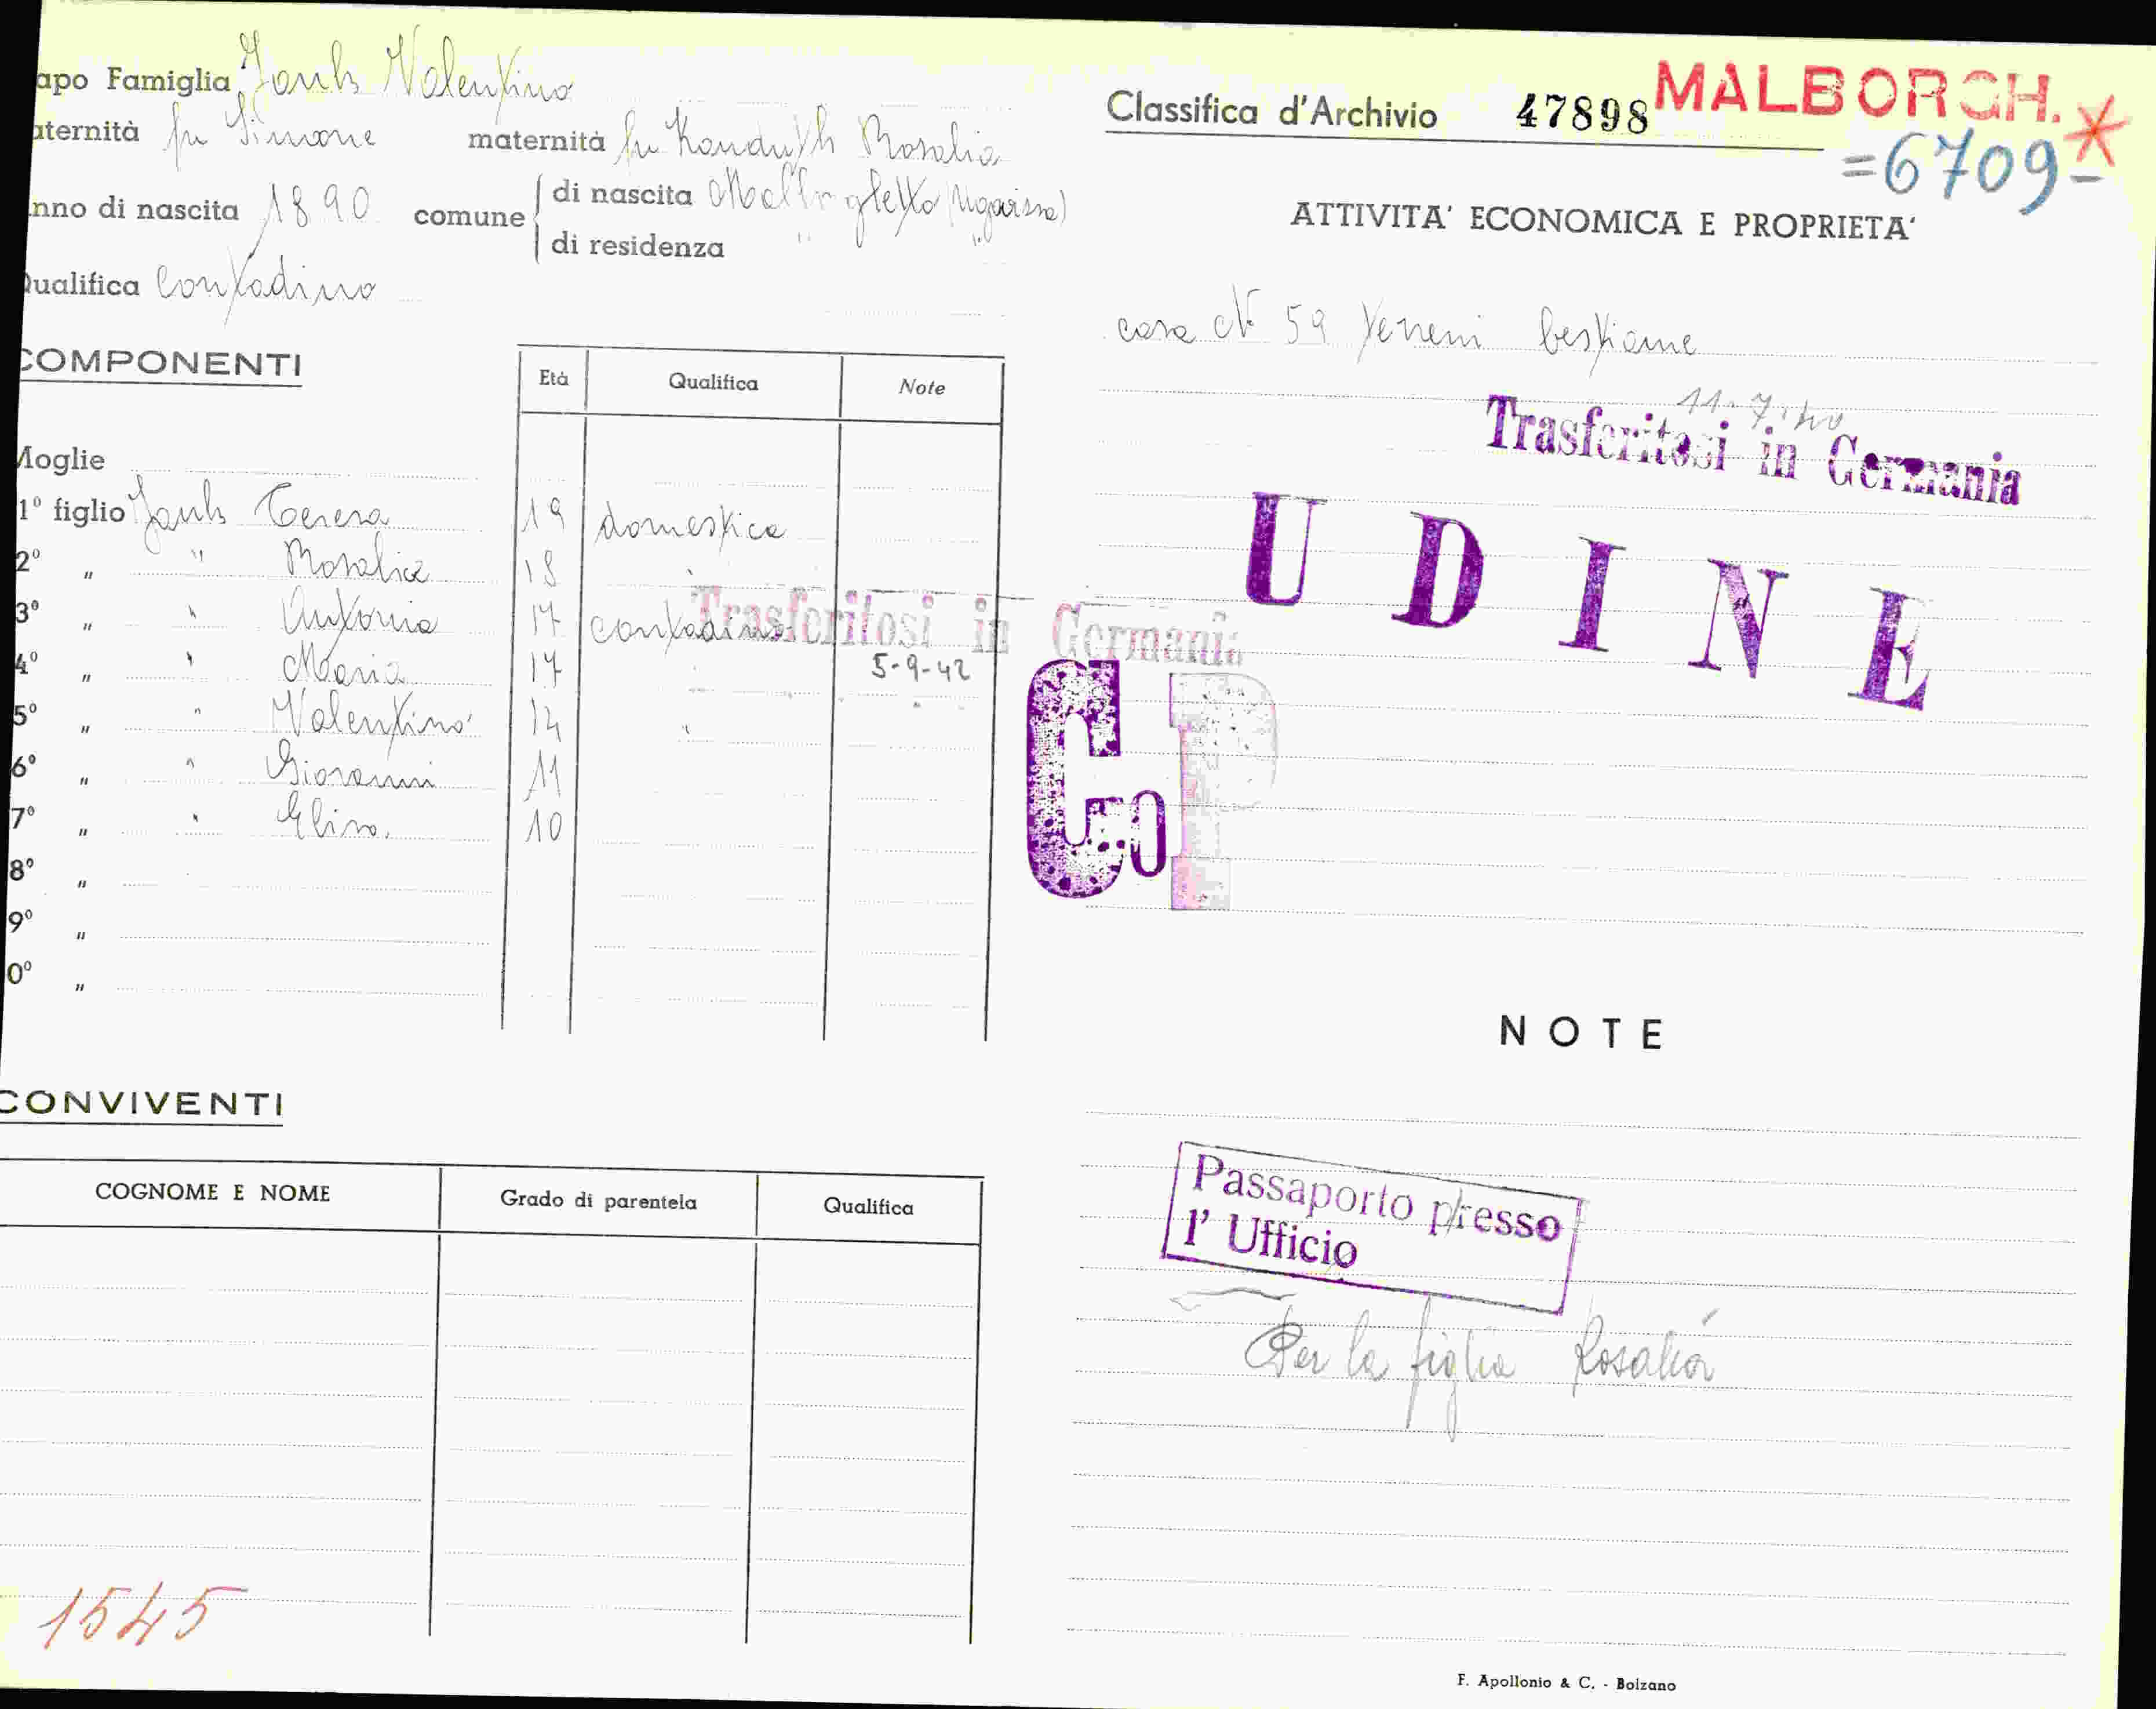 apo Famiglia Janh Valentino
aternità fu Simone maternità fu Kanduth Rosalia
nno di nascita 1890 comune di nascita Malborghetto (Ugovizza)
di residenza " "
Qualifica contadino
COMPONENTI
Età Qualifica Note
Moglie
1º figlio Janh Teresa 19 domestica
2º " " Rosalia 18 "
3º " " Antonia 17 contadina
4º " " Maria 17 "
5º " " Valentino 14 "
6º " " Giovanni 11
7º " " 10
8º "
9º "
0º "
Trasferitosi in Germania
5-9-42
CONVIVENTI
COGNOME E NOME Grado di parentela Qualifica
1545
Classifica d'Archivio 47898 MALBORGH.
=6709-
ATTIVITA' ECONOMICA E PROPRIETA'
casa N 59 terreni bestiame
11-7-40
Trasferitosi in Germania
UDINE
CoP
NOTE
Passaporto presso
l' Ufficio
Per la figlia Rosalia
F. Apollonio & C. - Bolzano